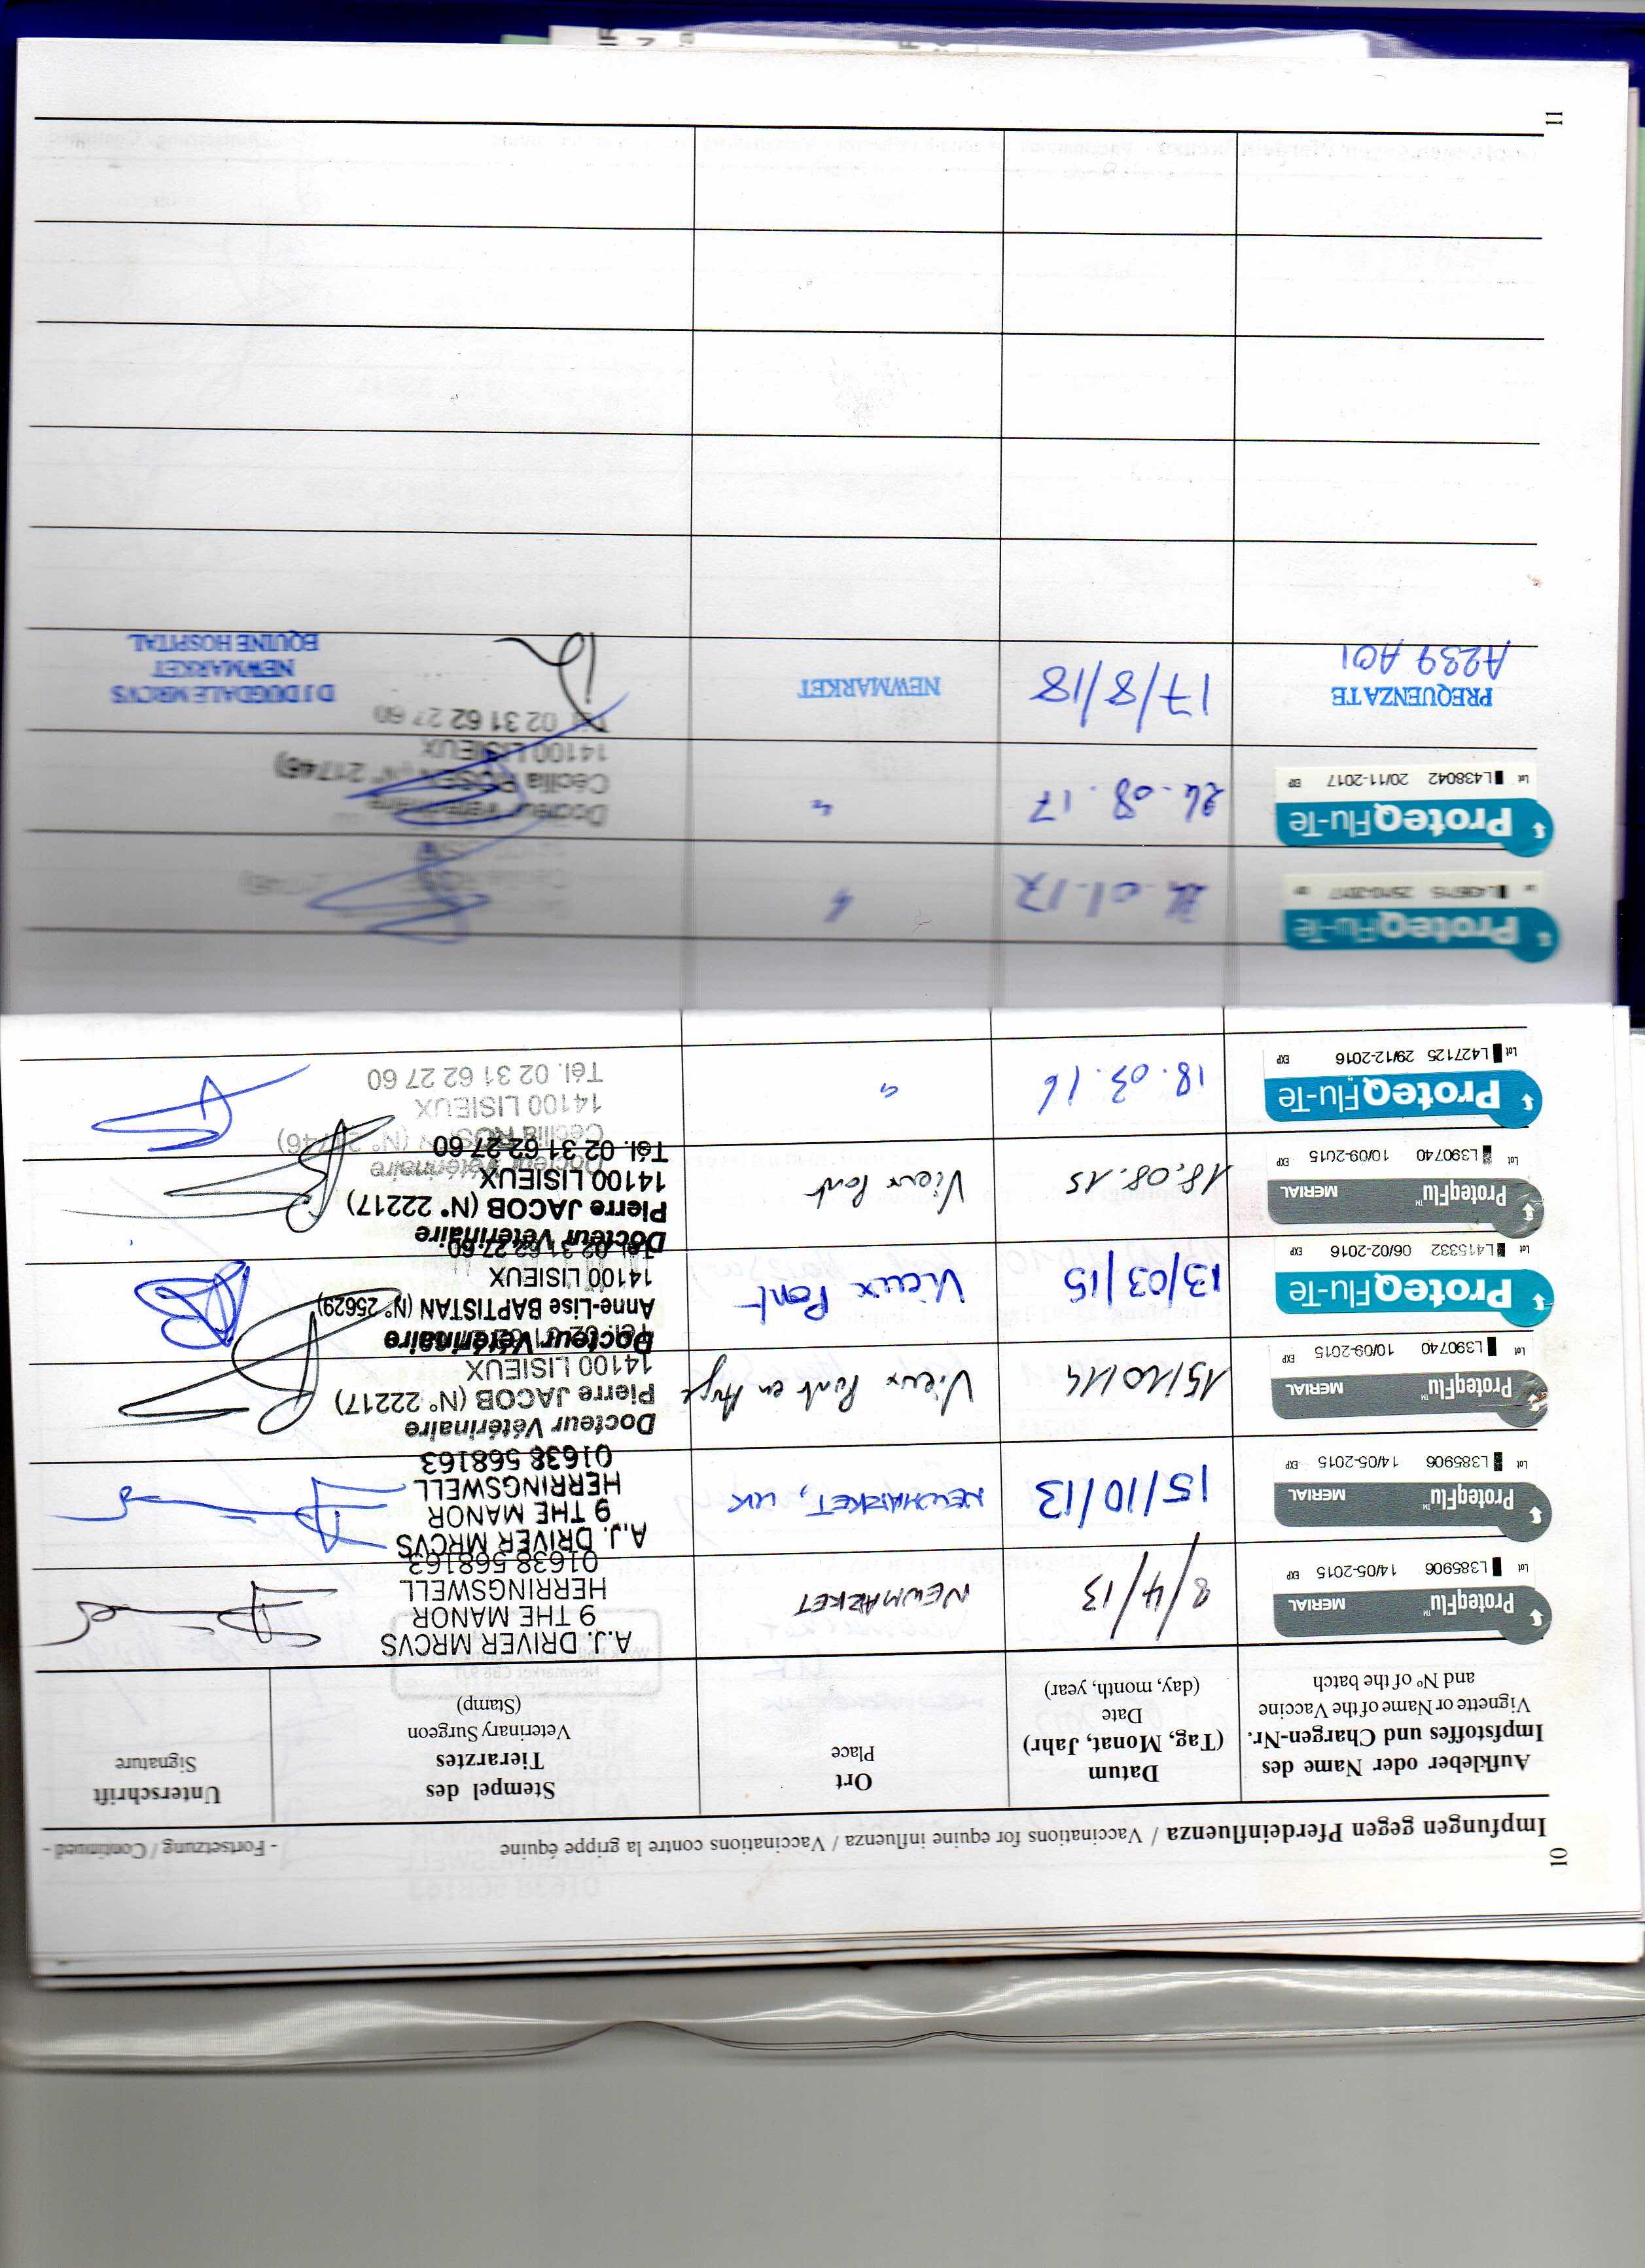 10
Impfungen gegen Pferdeinfluenza / Vaccinations for equine influenza / Vaccinations contre la grippe équine
- Fortsetzung / Continued -
Aufkleber oder Name des
Impfstoffes und Chargen-Nr.
Vignette or Name of the Vaccine
and Nº of the batch
Datum
(Tag, Monat, Jahr)
Date
(day, month, year)
Ort
Place
Stempel des
Tierarztes
Veterinary Surgeon
(Stamp)
Unterschrift
Signature
ProteqFlu™ MERIAL
Lot L385906 14/05-2015 EXP
8/4/13
NEWMARKET
A.J. DRIVER MRCVS
9 THE MANOR
HERRINGSWELL
01638 568163
ProteqFlu™ MERIAL
Lot L385906 14/05-2015 EXP
15/10/13
NEWMARKET, UK
A.J. DRIVER MRCVS
9 THE MANOR
HERRINGSWELL
01638 568163
ProteqFlu™ MERIAL
Lot L390740 10/09-2015 EXP
15/10/14
Vieux Pont en Auge
Docteur Vétérinaire
Pierre JACOB (N° 22217)
14100 LISIEUX
ProteqFlu-Te
Lot L415332 06/02-2016 EXP
13/03/15
Vieux Pont
Docteur Vétérinaire
Anne-Lise BAPTISTAN (N° 25629)
14100 LISIEUX
Tél. 02 31 62 27 60
ProteqFlu™ MERIAL
Lot L390740 10/09-2015 EXP
18.08.15
Vieux Pont
Docteur Vétérinaire
Pierre JACOB (N° 22217)
14100 LISIEUX
Tél. 02 31 62 27 60
ProteqFlu-Te
Lot L427125 29/12-2016 EXP
18.03.16
"
Docteur Vétérinaire
14100 LISIEUX
Tél. 02 31 62 27 60
ProteqFlu-Te
.01.17
"
ProteqFlu-Te
Lot L438042 20/11-2017 EXP
24.08.17
"
Docteur Vétérinaire
Cécilia ROSEN (N° 21746)
14100 LISIEUX
Tél. 02 31 62 27 60
PREQUENZA TE
A239 A01
17/8/18
NEWMARKET
D J DUGDALE MRCVS
NEWMARKET
EQUINE HOSPITAL
11